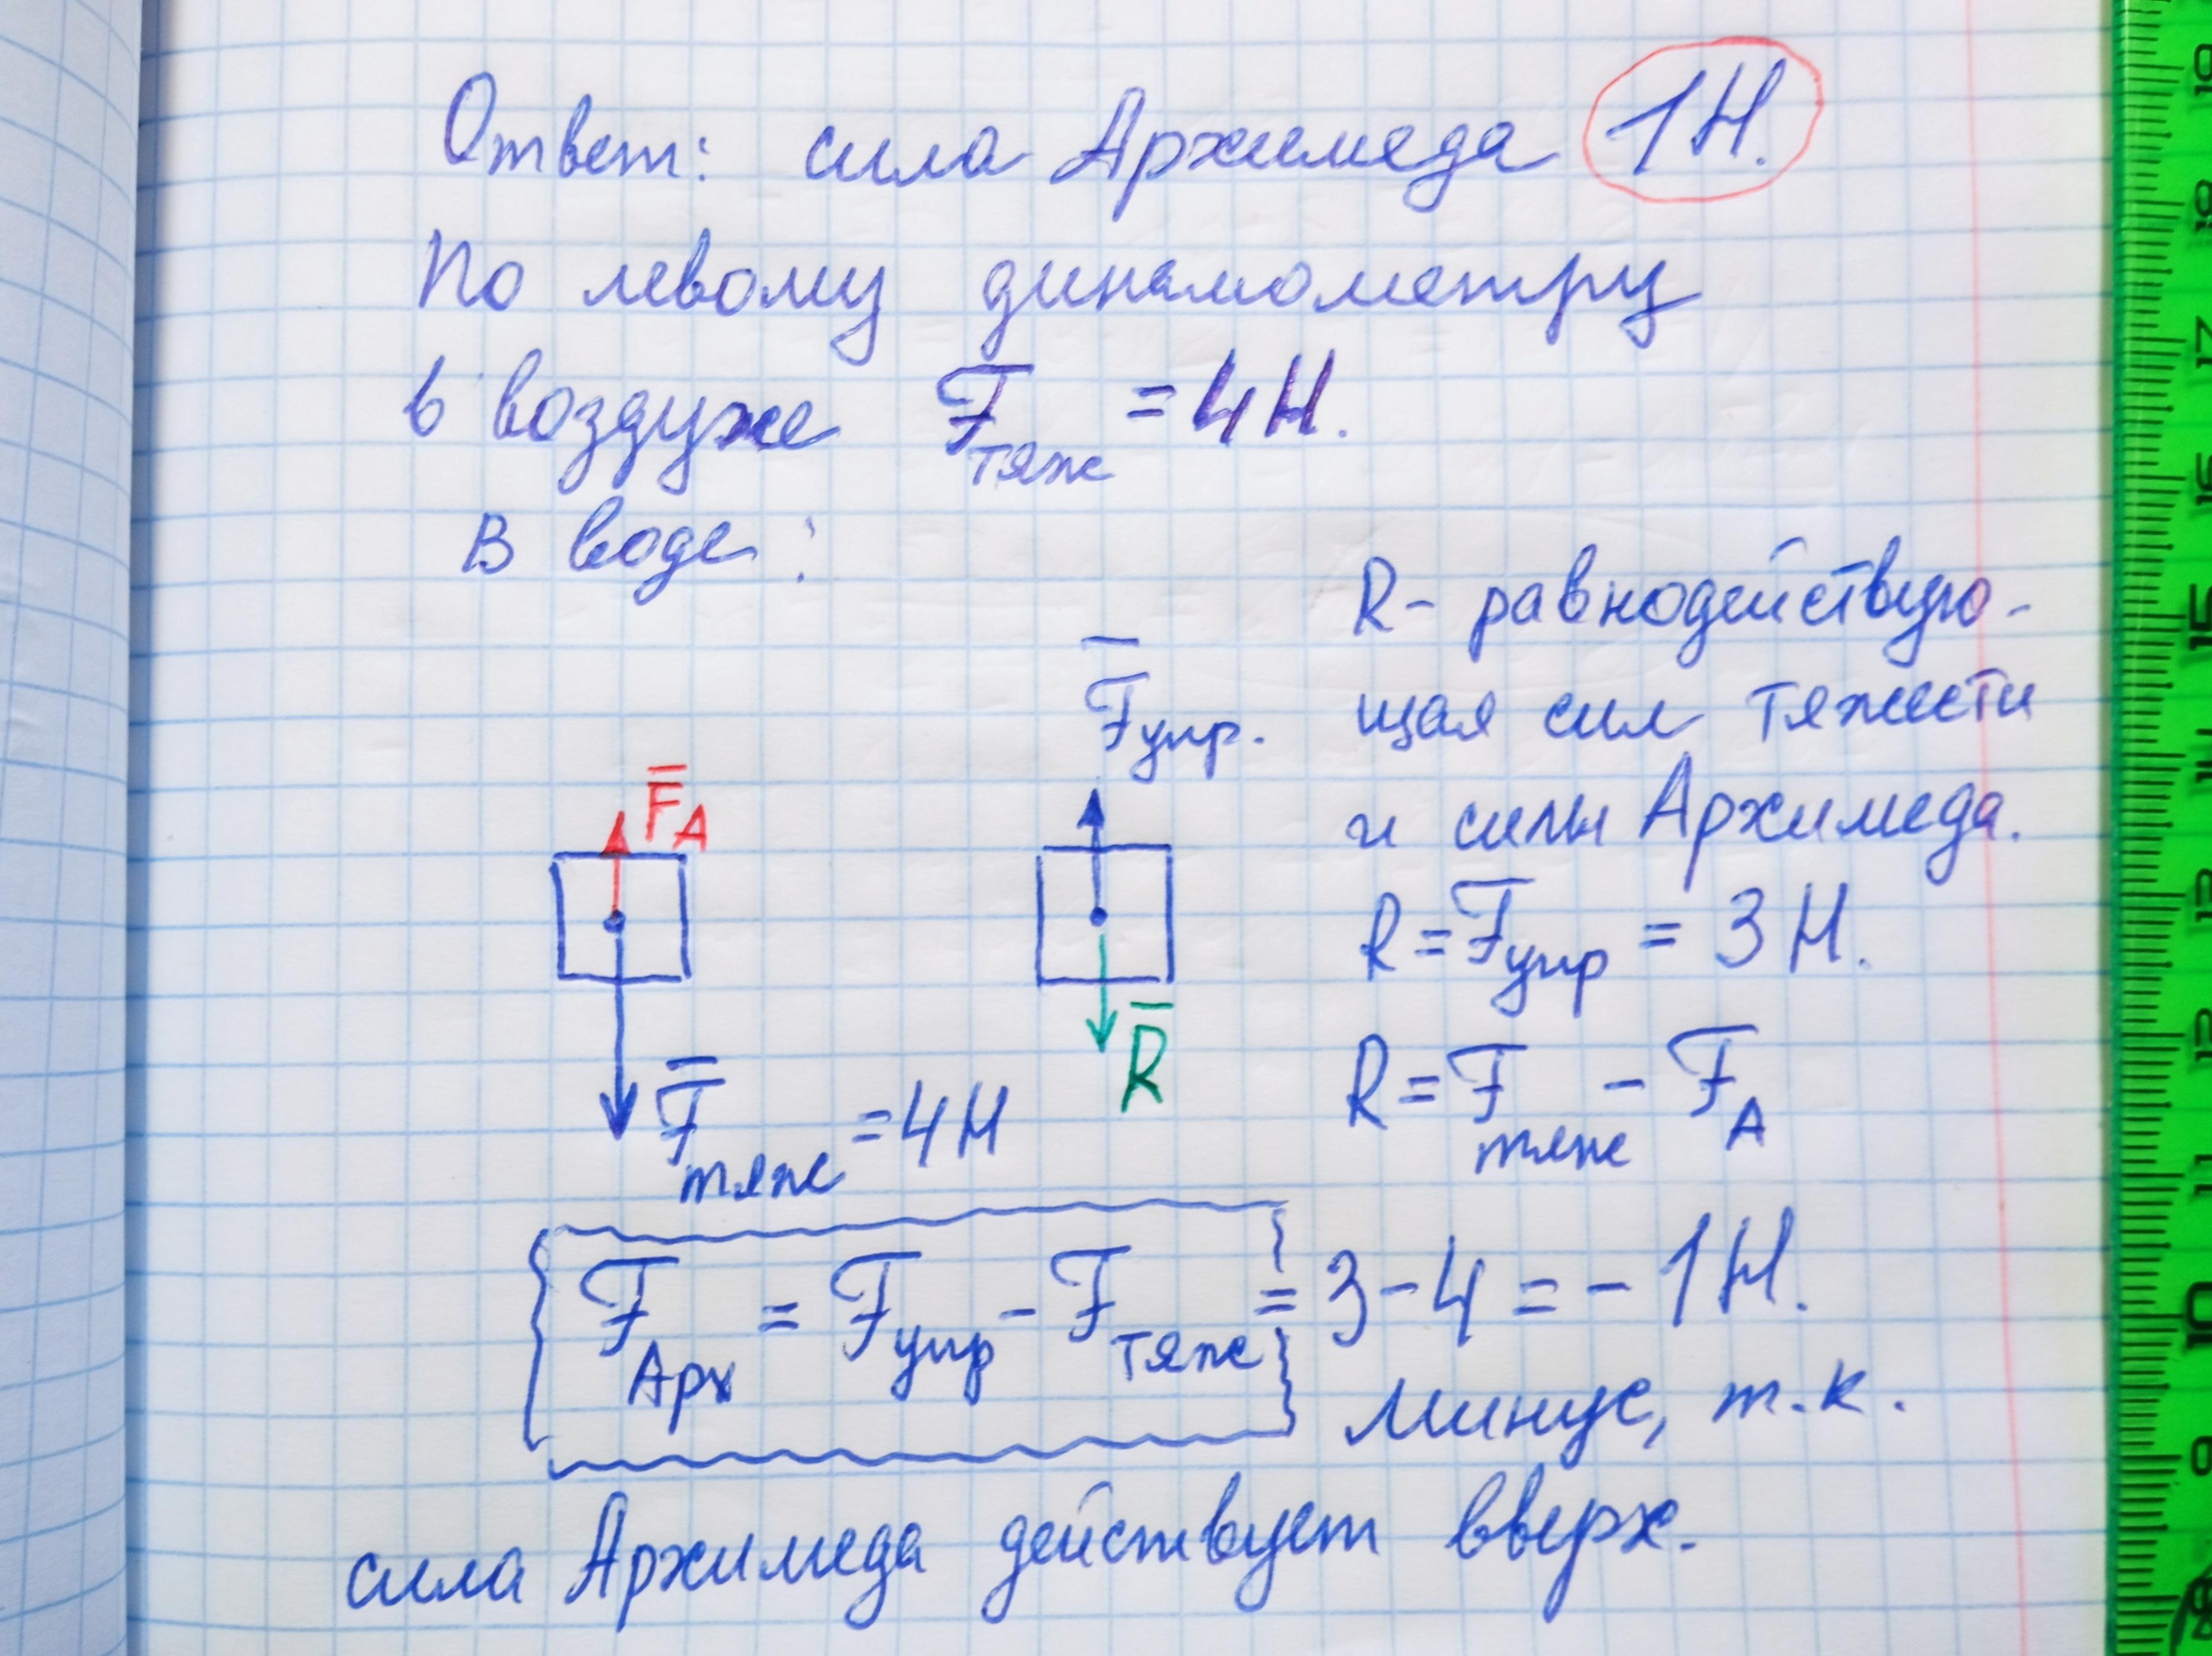 Ответ: сила Архимеда 1Н.
По левому динамометру
в воздухе Fтяж = 4Н.
В воде:
R - равнодействую-
щая сил тяжести
и силы Архимеда.
F̅упр.
F̅А
R = Fупр = 3Н.
R̅
R = Fтяж - FА
F̅тяж = 4Н
FАрх = Fупр - Fтяж = 3 - 4 = - 1Н.
минус, т.к.
сила Архимеда действует вверх.
18
17
16
15
14
13
12
11
10
9
8